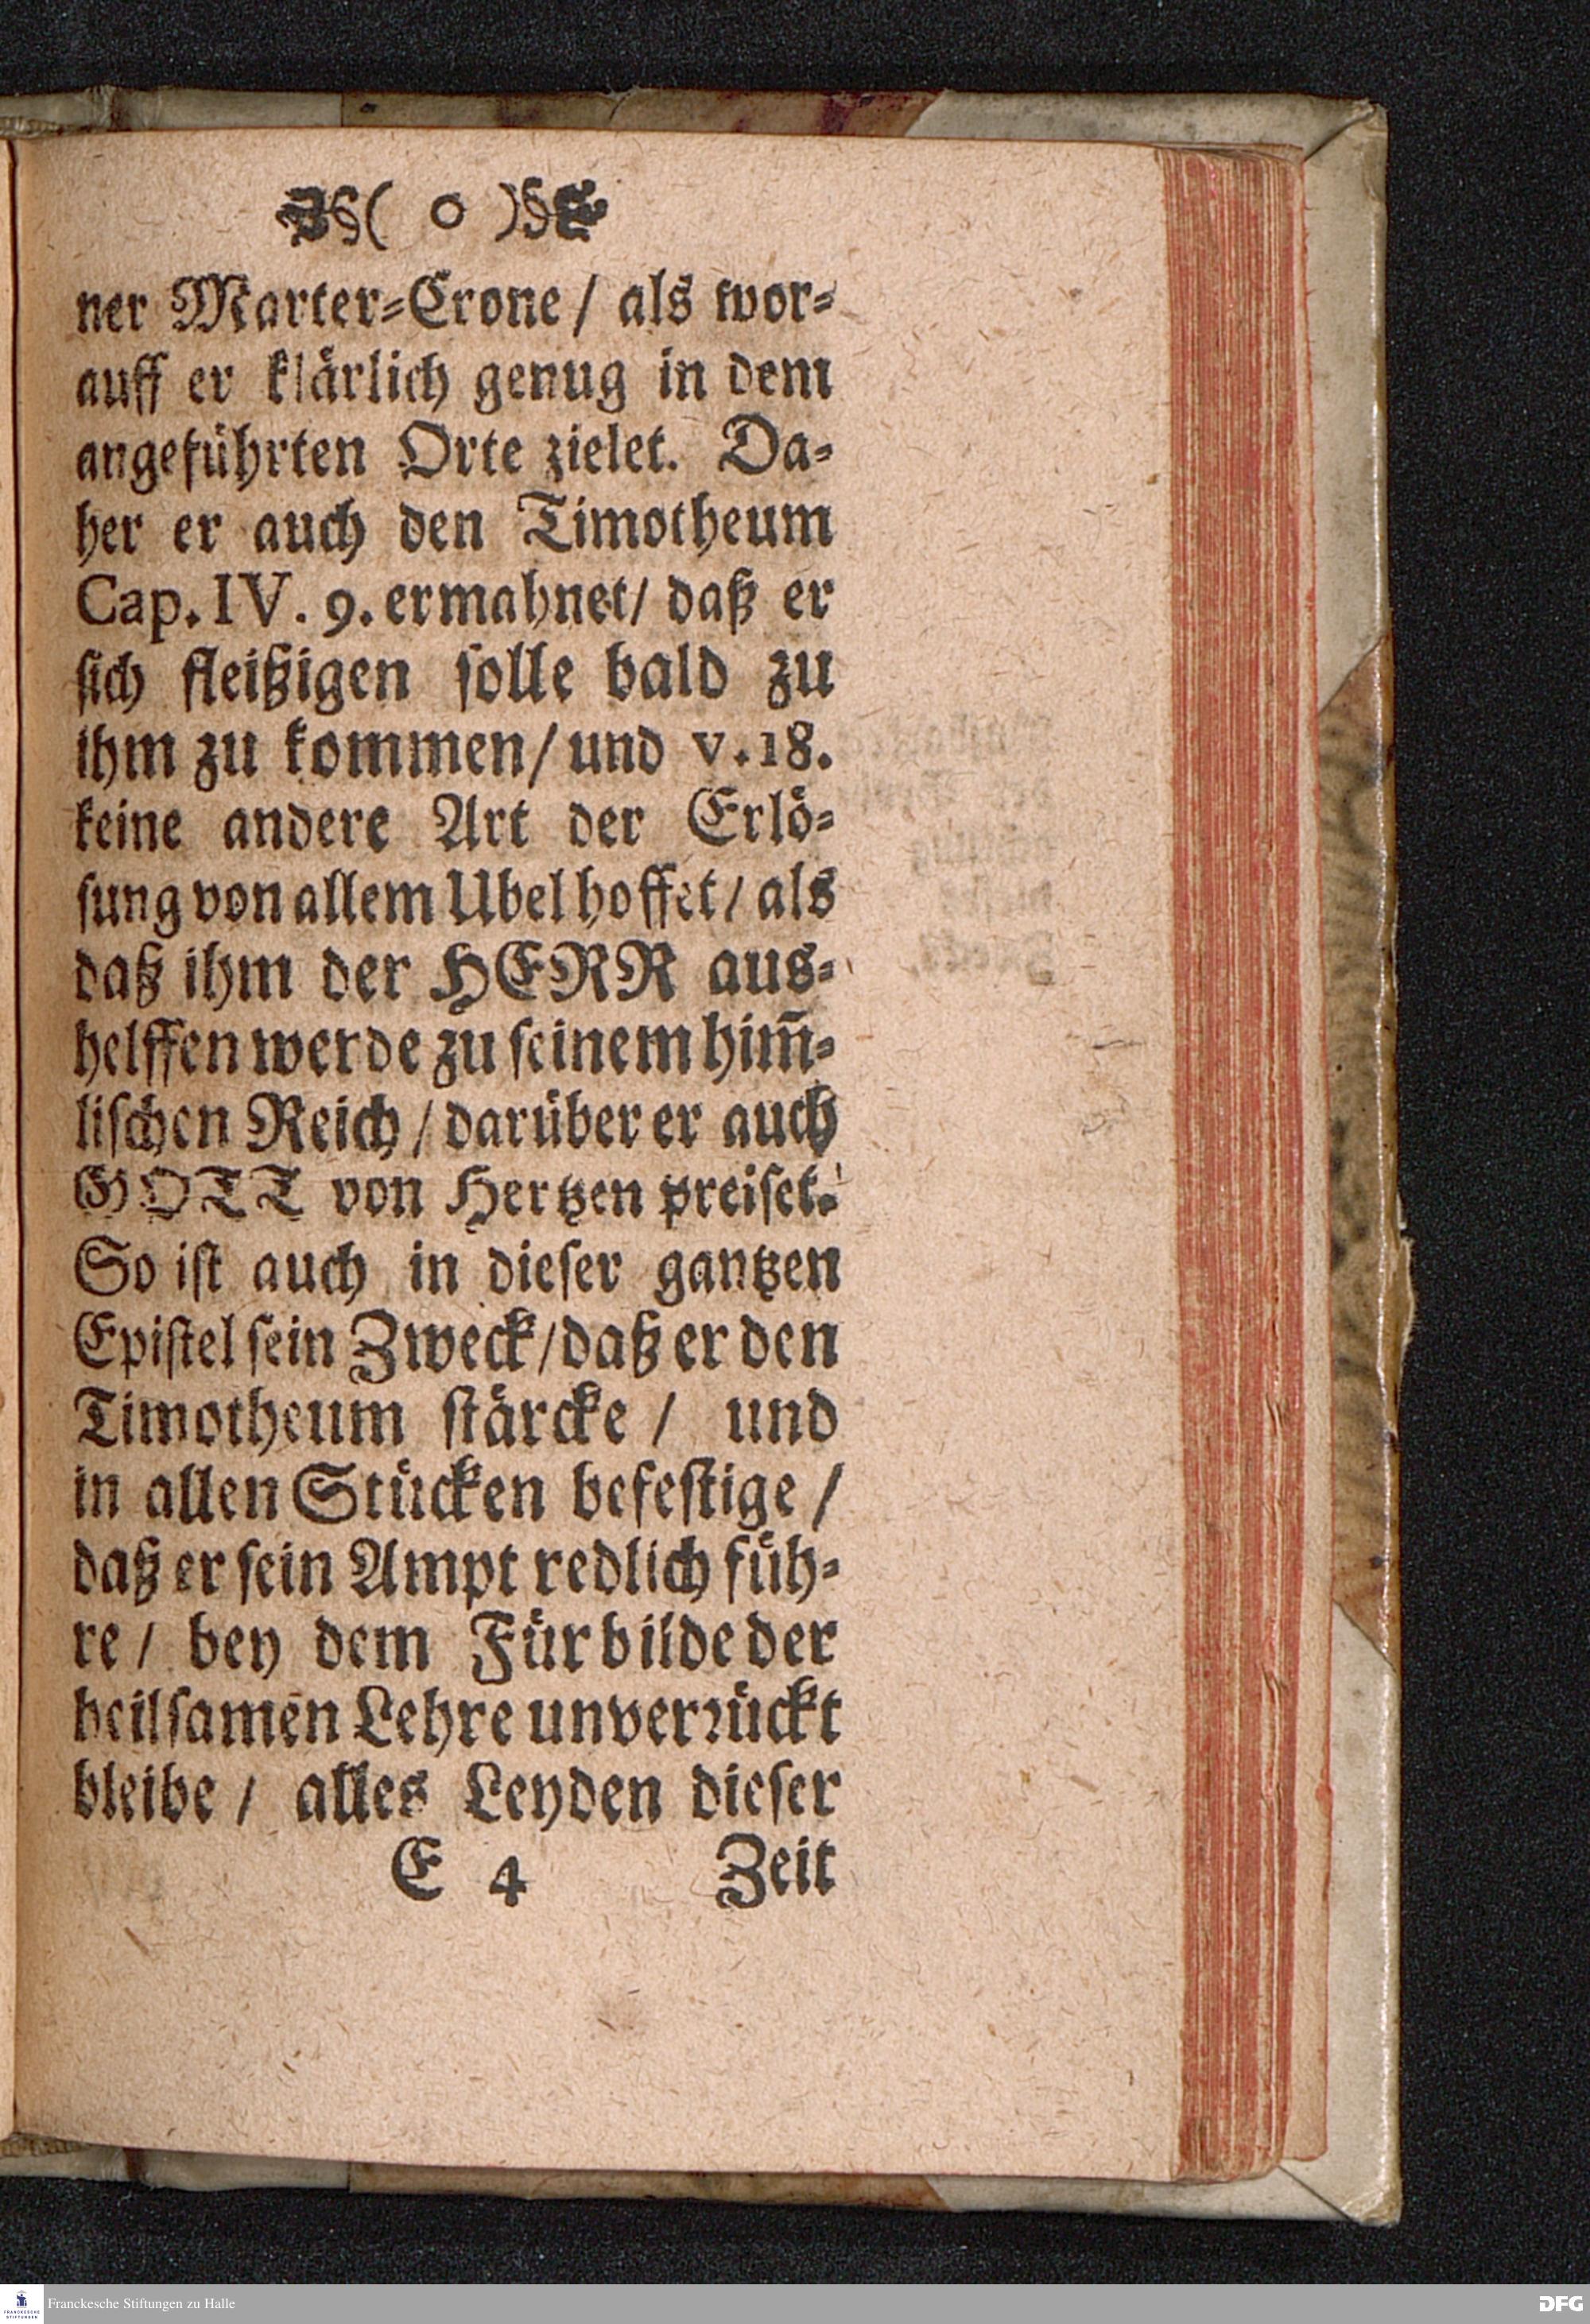 §( o )§
ner Marter-Crone / als wor-
auff er klärlich genug in dem
angeführten Orte zielet. Da-
her er auch den Timotheum
Cap. IV. 9. ermahnet / daß er
sich fleißigen solle bald zu
ihm zu kommen / und v. 18.
keine andere Art der Erlö-
sung von allem Ubel hoffet / als
daß ihm der HERR aus-
helffen werde zu seinem him̅-
lischen Reich / darüber er auch
GOTT von Hertzen preiset.
So ist auch in dieser gantzen
Epistel sein Zweck / daß er den
Timotheum stärcke / und
in allen Stücken befestige /
daß er sein Ampt redlich füh-
re / bey dem Fürbilde der
heilsamen Lehre unverrückt
bleibe / alles Leyden dieser
E 4 Zeit
FRANCKESCHE STIFTUNGEN
Franckesche Stiftungen zu Halle
DFG